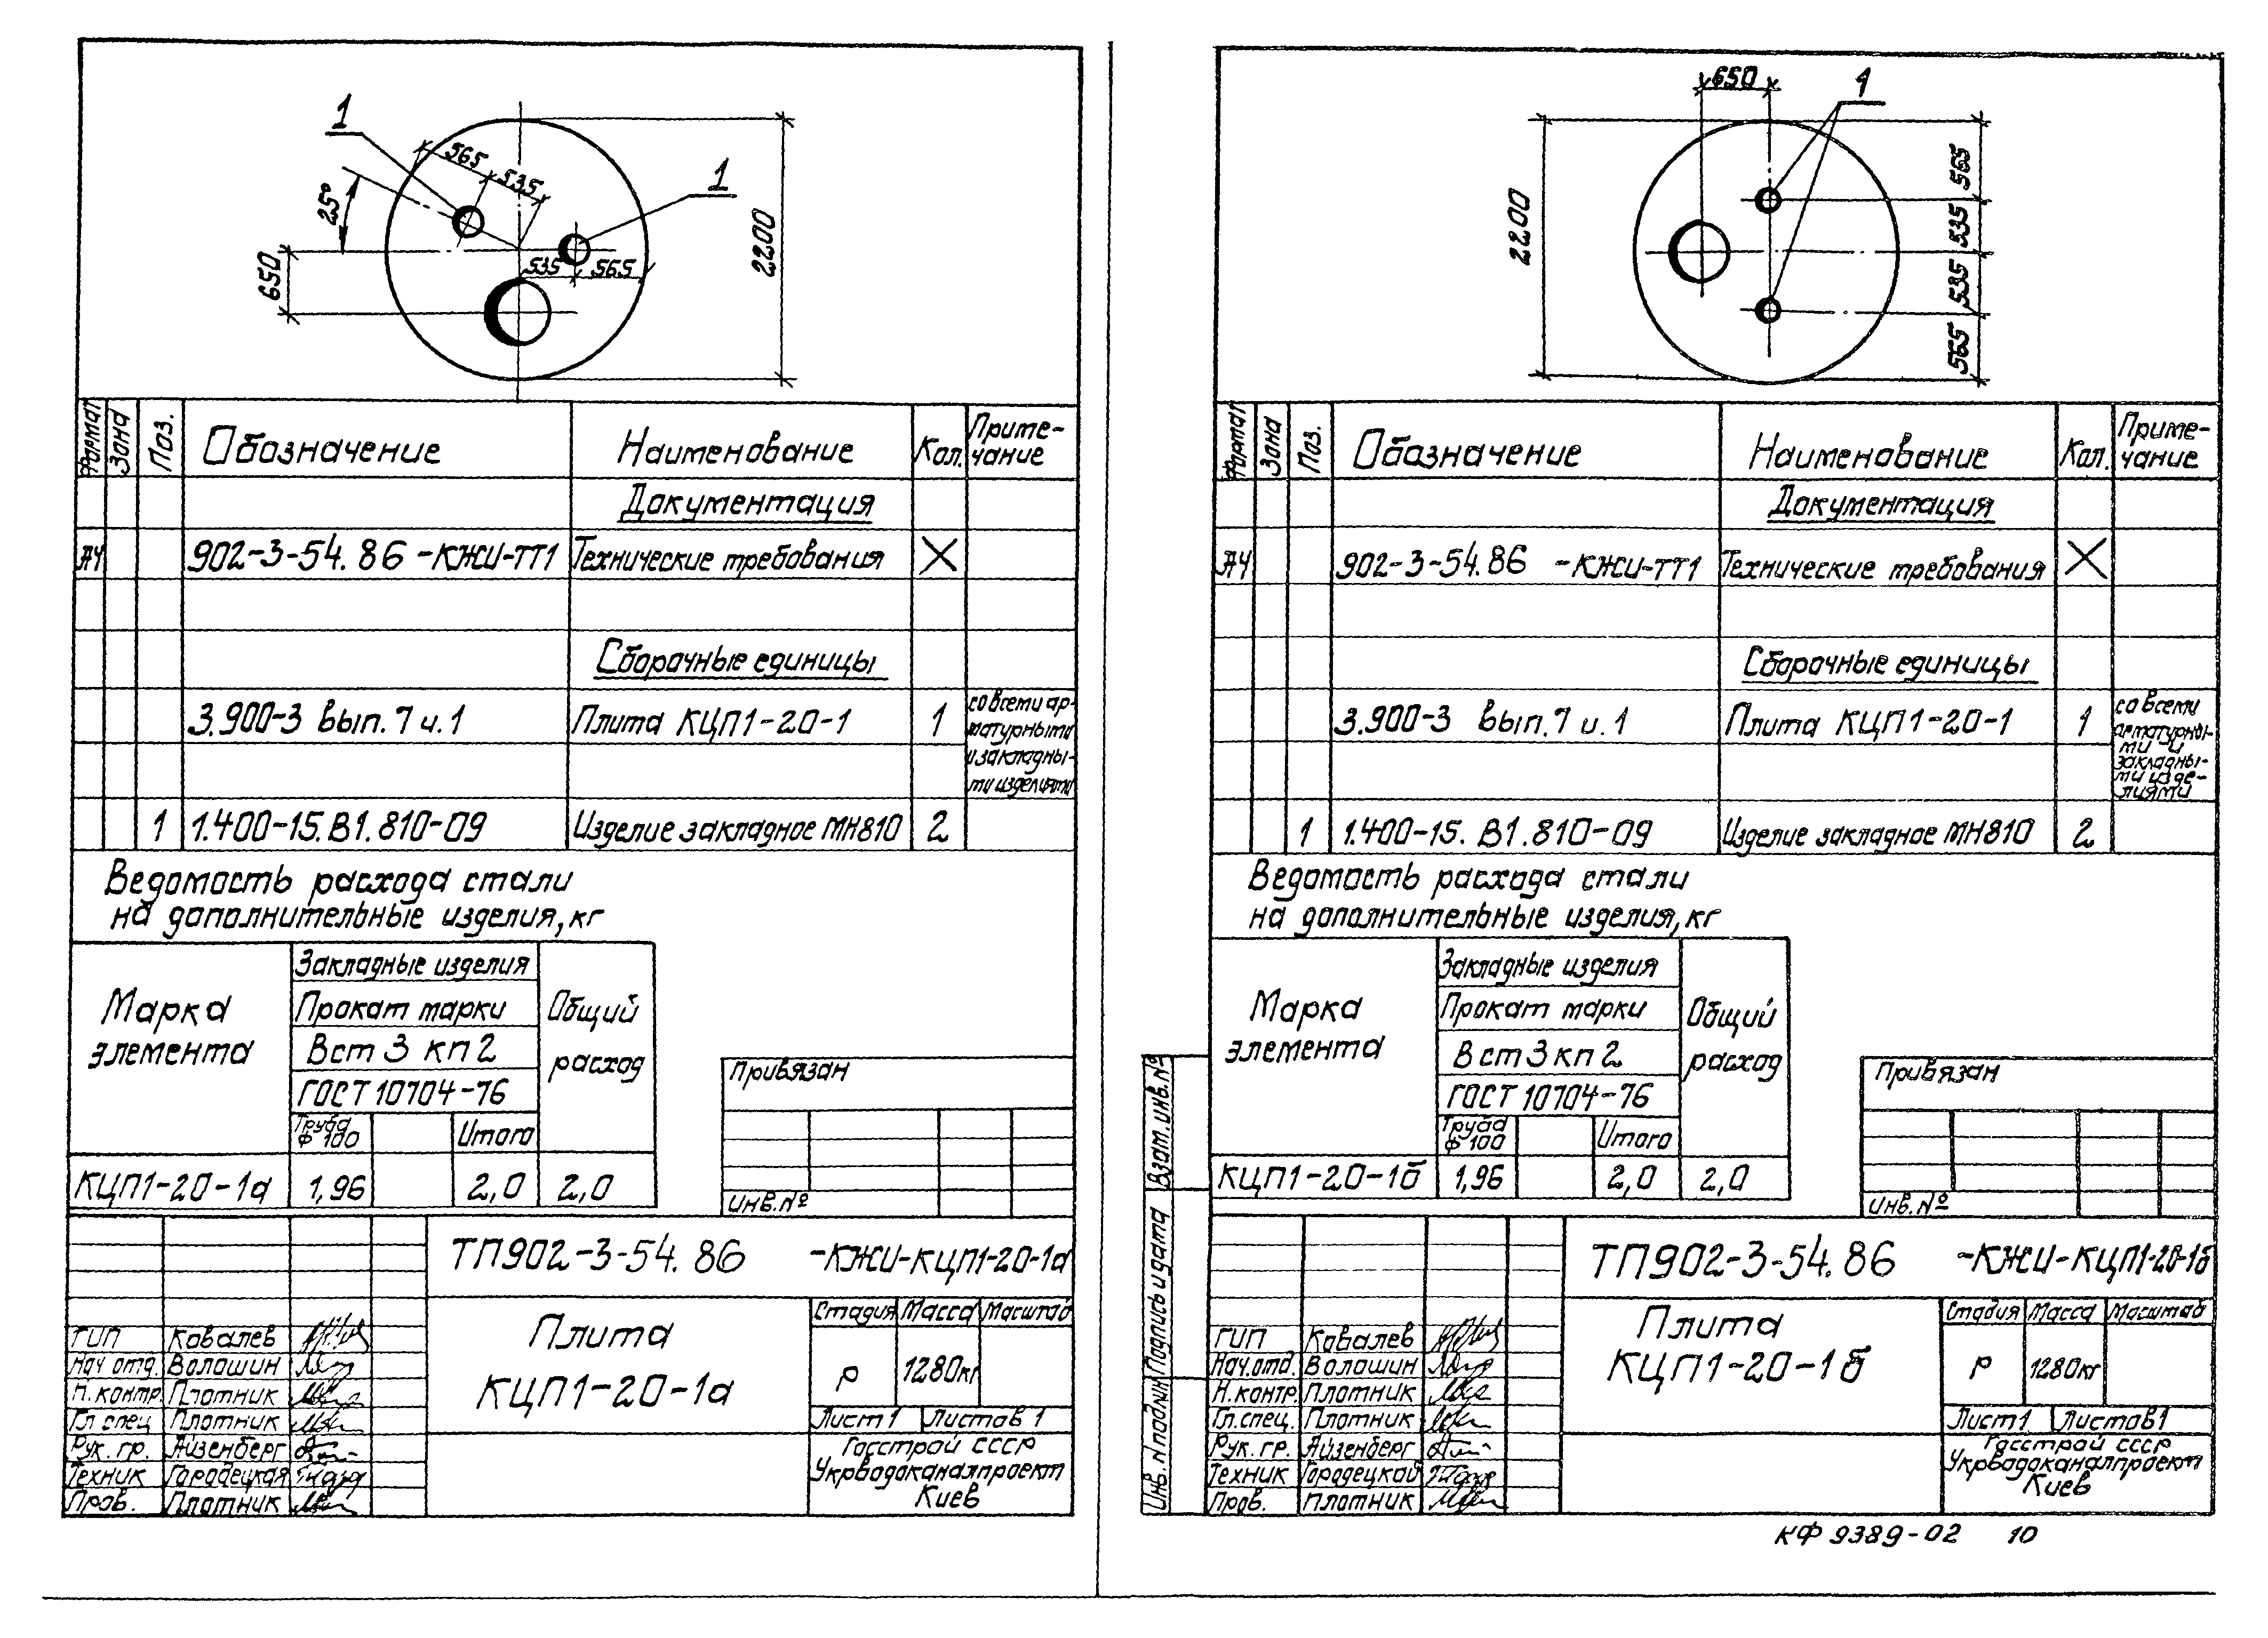 1
565
535
1
25°
650
535 565
2200
Формат Зона Поз. Обозначение Наименование Кол. Приме-
чание
Документация
А4 902-3-54.86 -КЖИ-ТТ1 Технические требования X
Сборочные единицы
3.900-3 вып.7 ч.1 Плита КЦП1-20-1 1 со всеми ар-
матурными
и закладны-
ми изделиями
1 1.400-15.В1.810-09 Изделие закладное МН810 2
Ведомость расхода стали
на дополнительные изделия, кг
Марка
элемента
Закладные изделия
Прокат марки
Вст 3 кп 2
ГОСТ 10704-76
Труба
Ф 100
Итого
Общий
расход
КЦП1-20-1а 1,96 2,0 2,0
Привязан
Инв.№
ТП902-3-54.86 -КЖИ-КЦП1-20-1а
Плита
КЦП1-20-1а
Стадия Масса Масштаб
Р 1280кг
Лист 1 Листов 1
Госстрой СССР
Укрводоканалпроект
Киев
ГИП Ковалев
Нач отд. Волошин
Н.контр. Плотник
Гл.спец Плотник
Рук. гр. Айзенберг
Техник Городецкая
Пров. Плотник
650
1
2200
565
535
535
565
Формат Зона Поз. Обозначение Наименование Кол. Приме-
чание
Документация
А4 902-3-54.86 -КЖИ-ТТ1 Технические требования X
Сборочные единицы
3.900-3 вып.7 ч.1 Плита КЦП1-20-1 1 со всеми
арматурны-
ми и
закладны-
ми изде-
лиями
1 1.400-15.В1.810-09 Изделие закладное МН810 2
Ведомость расхода стали
на дополнительные изделия, кг
Марка
элемента
Закладные изделия
Прокат марки
Вст 3 кп 2
ГОСТ 10704-76
Труба
Ф 100
Итого
Общий
расход
КЦП1-20-1б 1,96 2,0 2,0
Привязан
Инв.№
Взам.инв.№
Подпись и дата
Инв.N подлин
ТП902-3-54.86 -КЖИ-КЦП1-20-1б
Плита
КЦП1-20-1б
Стадия Масса Масштаб
Р 1280кг
Лист 1 Листов 1
Госстрой СССР
Укрводоканалпроект
Киев
ГИП Ковалев
Нач.отд. Волошин
Н.контр. Плотник
Гл.спец. Плотник
Рук. гр. Айзенберг
Техник Городецкая
Пров. Плотник
КФ 9389-02 10